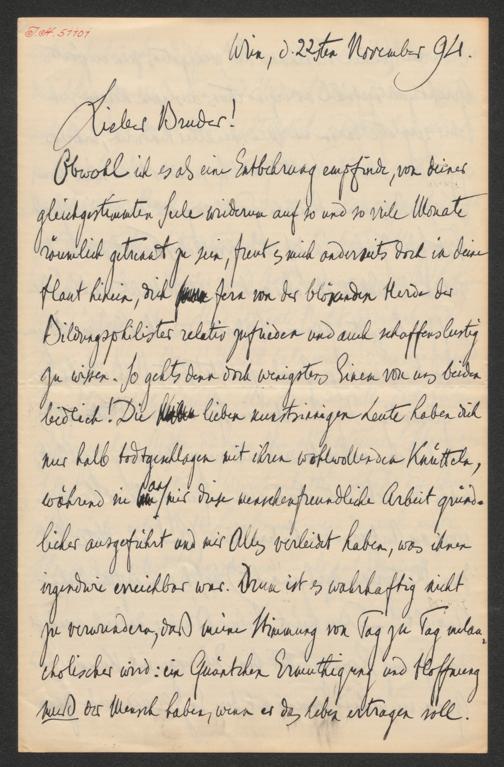 J.N. 51101
Wien, d. 22sten November 94.
Lieber Bruder!
Obwohl ich es als eine Entbehrung empfinde, von deiner
gleichgestimmten Seele wiederum auf so und so viele Monate
räumlich getrennt zu sein, freut es mich anderseits doch in deine
Haut hinein, dich fern von der blökenden Herde der
Bildungsphilister relativ zufrieden und auch schaffenslustig
zu wissen. So geht's denn doch wenigstens Einem von uns beiden
leidlich! Die lieben kunstsinnigen Leute haben dich
nur halb todtgeschlagen mit ihren wohlwollenden Knütteln,
während sie an mir diese menschenfreundliche Arbeit gründ-
licher ausgeführt und mir Alles verleidet haben, was ihnen
irgendwie erreichbar war. Drum ist es wahrhaftig nicht
zu verwundern, daß meine Stimmung von Tag zu Tag melan-
cholischer wird: ein Quäntchen Ermuthigung und Hoffnung
muß der Mensch haben, wenn er das Leben ertragen soll.